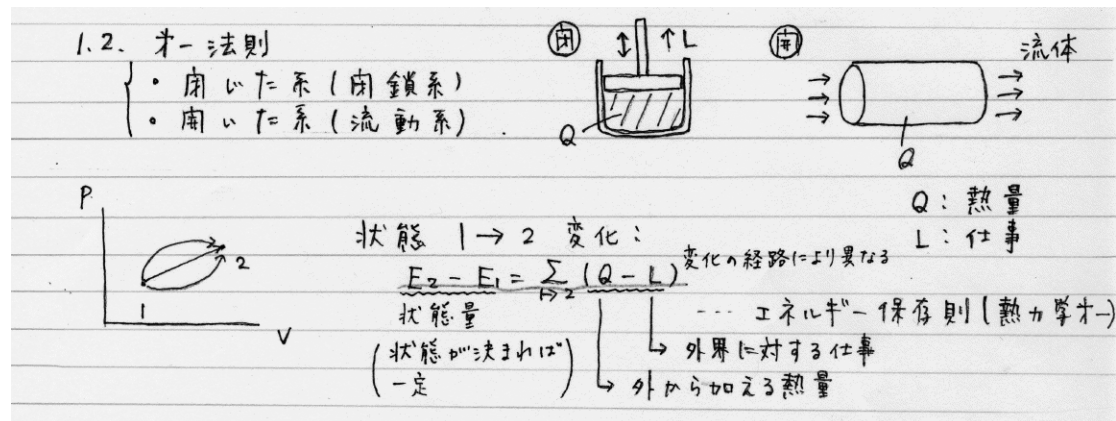 1.2. 才一法則
・閉じた系(閉鎖系)
・開いた系(流動系)
閉
L
Q
開
流体
Q
Q:熱量
L:仕事
P
1
2
V
状態 1→2 変化:
E₂-E₁=Σ(Q-L) 変化の経路により異なる
1→2
状態量
(状態が決まれば
一定)
… エネルギー保存則(熱力学才一)
外界に対する仕事
外から加える熱量